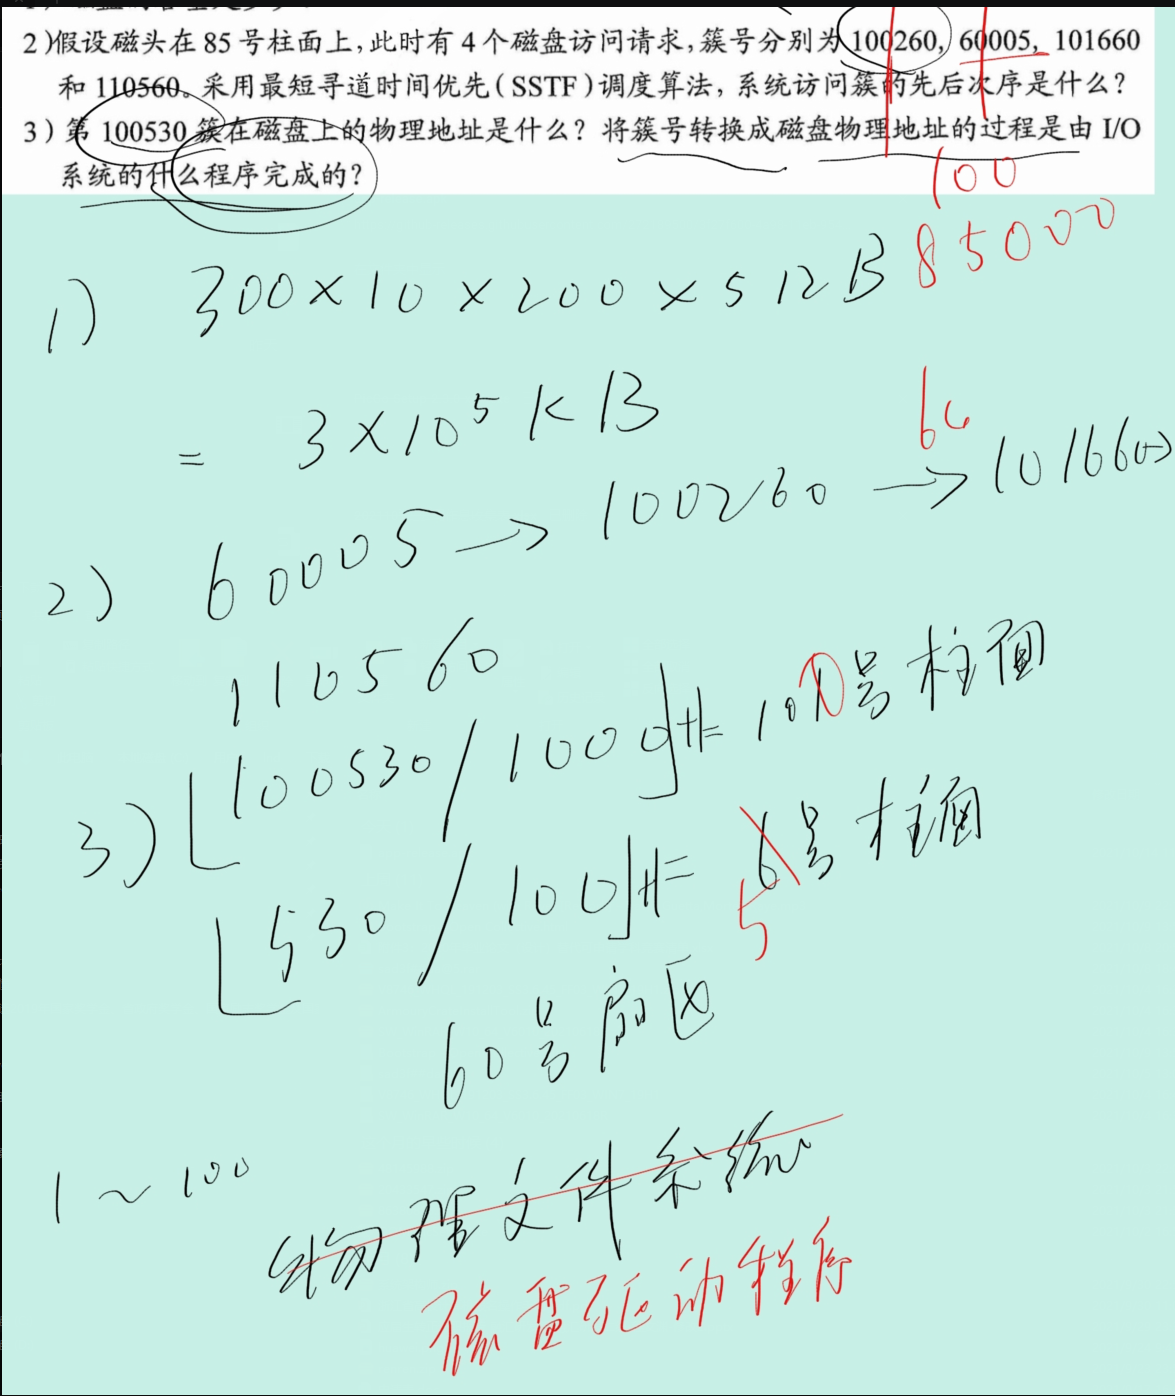 2)假设磁头在 85 号柱面上,此时有 4 个磁盘访问请求,簇号分别为 100260, 60005, 101660
和 110560。采用最短寻道时间优先(SSTF)调度算法,系统访问簇的先后次序是什么?
3)第 100530 簇在磁盘上的物理地址是什么?将簇号转换成磁盘物理地址的过程是由 I/O
系统的什么程序完成的?
100
85000
1) 300×10×200×512B
= 3×10⁵KB
2) 60005→100260→101660→
110560
3) ⌊100530/1000⌋ = 100号柱面
⌊530/100⌋ = 6号柱面
5
60号扇区
1~100
物理文件系统
磁盘驱动程序